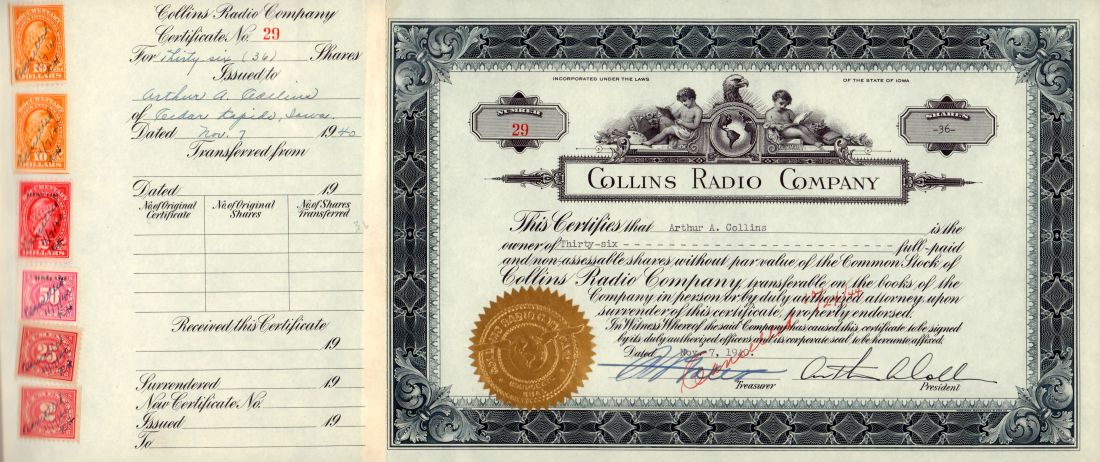 DOCUMENTARY
10
DOLLARS
DOCUMENTARY
10
DOLLARS
DOCUMENTARY
DOLLARS
50
25
2
Collins Radio Company
Certificate No. 29
For Thirty six (36) Shares
Issued to
Arthur A. Collins
of Cedar Rapids, Iowa.
Dated Nov. 7 1940
Transferred from
Dated 19
No. of Original Certificate
No. of Original Shares
No. of Shares Transferred
Received this Certificate
19
Surrendered 19
New Certificate No.
Issued 19
To
INCORPORATED UNDER THE LAWS
OF THE STATE OF IOWA
NUMBER
29
SHARES
-36-
COLLINS RADIO COMPANY
This Certifies that Arthur A. Collins is the
owner of Thirty-six - - - - - - - - - - - - - - - - - - - - - - - - - full-paid
and non-assessable shares without par value of the Common Stock of
Collins Radio Company, transferable on the books of the
Company in person or by duly authorized attorney upon
surrender of this certificate, properly endorsed.
In Witness Whereof the said Company has caused this certificate to be signed
by its duly authorized officers and its corporate seal to be hereunto affixed.
Dated Nov. 7, 1940.
Cancelled
Arthur A Collins
Treasurer
President